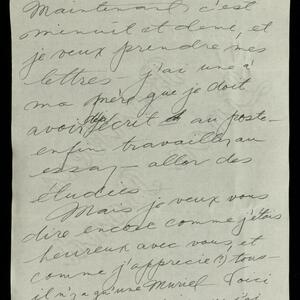 Maintenant c'est
minuit et demi, et
je veux prendre mes
lettres – j'ai une à
ma mère que je dois
avoir déjà écrit au poste –
enfin travailler au
essay – allor des
études
Mais je veux vous
dire encore comme j'étais
heureux avec vous, et
comme j'apprecie (?) tous –
il n'y a qu'une Muriel